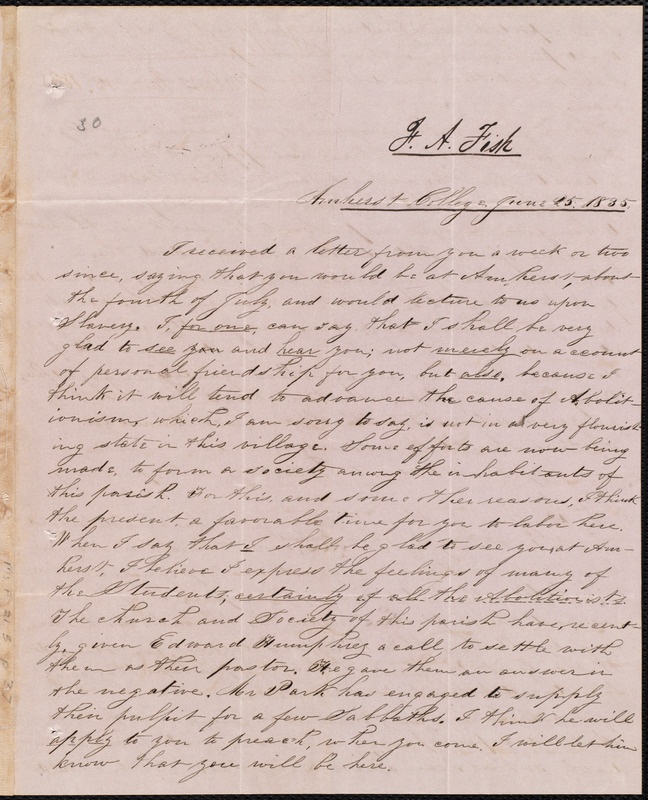 30
F. A. Fish
Amherst College, June 25. 1835.
I received a letter from you a week or two
since, saying that you would be at Amherst, about
the fourth of July, and would lecture to us upon
Slavery. I, for one, can say that I shall be very
glad to see you and hear you; not merely on account
of personal friendship for you, but also, because I
think it will tend to advance the cause of Abolit-
ionism, which, I am sorry to say, is not in a very flourish-
ing state in this village. Some efforts are now being
made, to form a society among the inhabitants of
this parish. For this, and some other reasons, I think
the present a favorable time for you to labor here.
When I say that I shall be glad to see you at Am-
herst, I believe I express the feelings of many of
the Students, certainly of all the Abolitionists.
The church and Society of this parish have, recent-
ly, given Edward Humphrey a call, to settle with
them as their pastor. He gave them an answer in
the negative. Mr Park has engaged to supply
their pulpit for a few Sabbaths. I think he will
apply to you to preach, when you come. I will let him
know that you will be here.